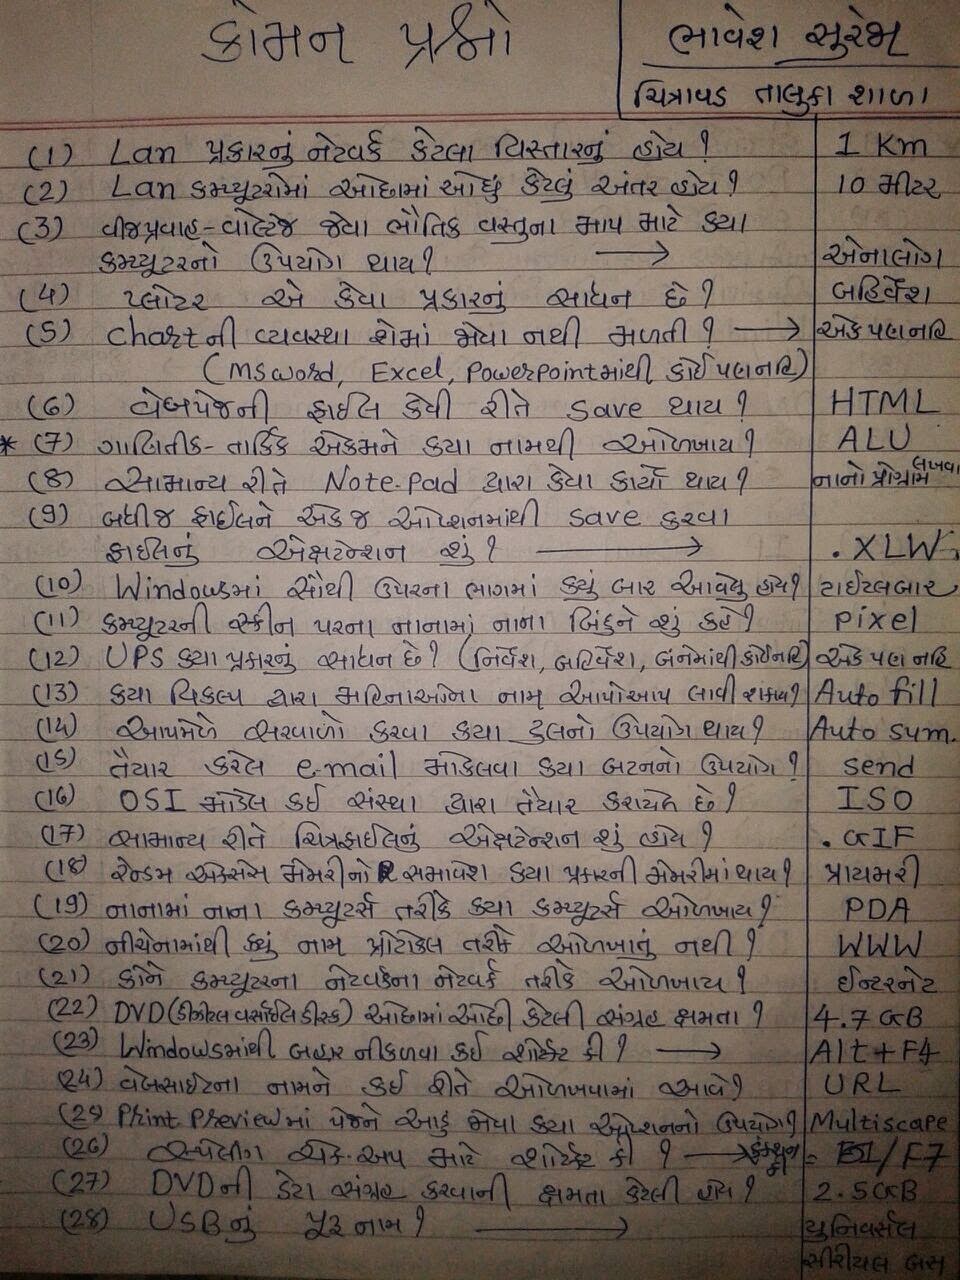 કોમન પ્રશ્નો
ભાવેશ સુરેજા
ચિત્રાવડ તાલુકા શાળા
(1) Lan પ્રકારનું નેટવર્ક કેટલા વિસ્તારનું હોય? 1 Km
(2) Lan કમ્પ્યૂટરોમાં ઓછામાં ઓછું કેટલું અંતર હોય? 10 મીટર
(3) વીજપ્રવાહ-વોલ્ટેજ જેવા ભૌતિક વસ્તુના માપ માટે ક્યા
કમ્પ્યૂટરનો ઉપયોગ થાય? → એનાલોગ
(4) પ્લોટર એ કેવા પ્રકારનું સાધન છે? બહિર્વેશ
(5) Chartની વ્યવસ્થા શેમાં જોવા નથી મળતી? → એકપણ નહિ
(MSword, Excel, PowerPointમાંથી કોઈ પણ નહિ)
(6) વેબપેજની ફાઈલ કેવી રીતે save થાય? HTML
* (7) ગાણિતીક-તાર્કિક એકમને ક્યા નામથી ઓળખાય? ALU
(8) સામાન્ય રીતે Note-Pad દ્વારા કેવા કાર્યો થાય? નાનો પ્રોગ્રામ લખવા
(9) બધીજ ફાઈલને એક જ ઓપ્શનમાંથી save કરવા
ફાઈલનું એક્ષટેન્શન શું? → .XLW
(10) Windowsમાં સૌથી ઉપરના ભાગમાં ક્યું બાર આવેલુ હોય? ટાઈટલબાર
(11) કમ્પ્યૂટરની સ્ક્રીન પરના નાનામાં નાના બિંદુને શું કહે? Pixel
(12) UPS ક્યા પ્રકારનું સાધન છે? (નિર્વેશ, બહિર્વેશ, બંનેમાંથી કોઈનહિ) એક પણ નહિ
(13) ક્યા વિકલ્પ દ્વારા મહિનાઓના નામ આપોઆપ લાવી શકાય? Auto fill
(14) આપમેળે સરવાળો કરવા ક્યા ટુલનો ઉપયોગ થાય? Auto sum.
(15) તૈયાર કરેલ e-mail મોકલવા ક્યા બટનનો ઉપયોગ? send
(16) OSI મોડેલ કઈ સંસ્થા દ્વારા તૈયાર કરાયેલ છે? ISO
(17) સામાન્ય રીતે ચિત્રફાઈલનું એક્ષટેન્શન શું હોય? .GIF
(18) રેન્ડમ એક્સેસ મેમરીનો સમાવેશ ક્યા પ્રકારની મેમરીમાં થાય? પ્રાયમરી
(19) નાનામાં નાના કમ્પ્યૂટર્સ તરીકે ક્યા કમ્પ્યૂટર્સ ઓળખાય? PDA
(20) નીચેનામાંથી ક્યું નામ પ્રોટોકલ તરીકે ઓળખાતું નથી? WWW
(21) કોને કમ્પ્યૂટરના નેટવર્કના નેટવર્ક તરીકે ઓળખાય? ઈન્ટરનેટ
(22) DVD(ડીજીટલ વર્સાઈલ ડીસ્ક) ઓછામાં ઓછી કેટલી સંગ્રહ ક્ષમતા? 4.7 GB
(23) Windowsમાંથી બહાર નીકળવા કઈ શોર્ટકટ કી? → Alt+F4
(24) વેબસાઈટના નામને કઈ રીતે ઓળખવામાં આવે? URL
(25) Print Previewમાં પેજને આડુ જોવા ક્યા ઓપ્શનનો ઉપયોગ? Multiscape
(26) સ્પેલીંગ ચેક-અપ માટે શોર્ટકટ કી? → ફંક્શન કી = /F7
(27) DVDની ડેટા સંગ્રહ કરવાની ક્ષમતા કેટલી હોય? 2.5GB
(28) USBનું પૂરૂ નામ? → યુનિવર્સલ
સીરીયલ બસ